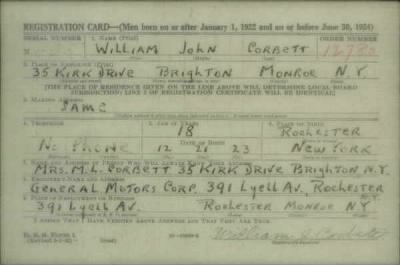 REGISTRATION CARD—(Men born on or after January 1, 1922 and on or before June 30, 1924)
SERIAL NUMBER 1. NAME (Print) ORDER NUMBER
WILLIAM JOHN CORBETT 12780
2. PLACE OF RESIDENCE (Print)
35 KIRK DRIVE BRIGHTON MONROE N.Y.
[THE PLACE OF RESIDENCE GIVEN ON THE LINE ABOVE WILL DETERMINE LOCAL BOARD
JURISDICTION; LINE 2 OF REGISTRATION CERTIFICATE WILL BE IDENTICAL]
3. MAILING ADDRESS
SAME
4. TELEPHONE 5. AGE IN YEARS 6. PLACE OF BIRTH
18 ROCHESTER
DATE OF BIRTH
NO PHONE 12 23 NEW YORK
7. NAME AND ADDRESS OF PERSON WHO WILL ALWAYS KNOW YOUR ADDRESS
MRS. M.L. CORBETT 35 KIRK DRIVE BRIGHTON N.Y.
8. EMPLOYER'S NAME AND ADDRESS
GENERAL MOTORS CORP. 391 LYELL AV., ROCHESTER
9. PLACE OF EMPLOYMENT OR BUSINESS N.Y.
391 LYELL AV. ROCHESTER MONROE N.Y.
I AFFIRM THAT I HAVE VERIFIED ABOVE ANSWERS AND THAT THEY ARE TRUE.
D. S. S. Form 1
William J. Corbett